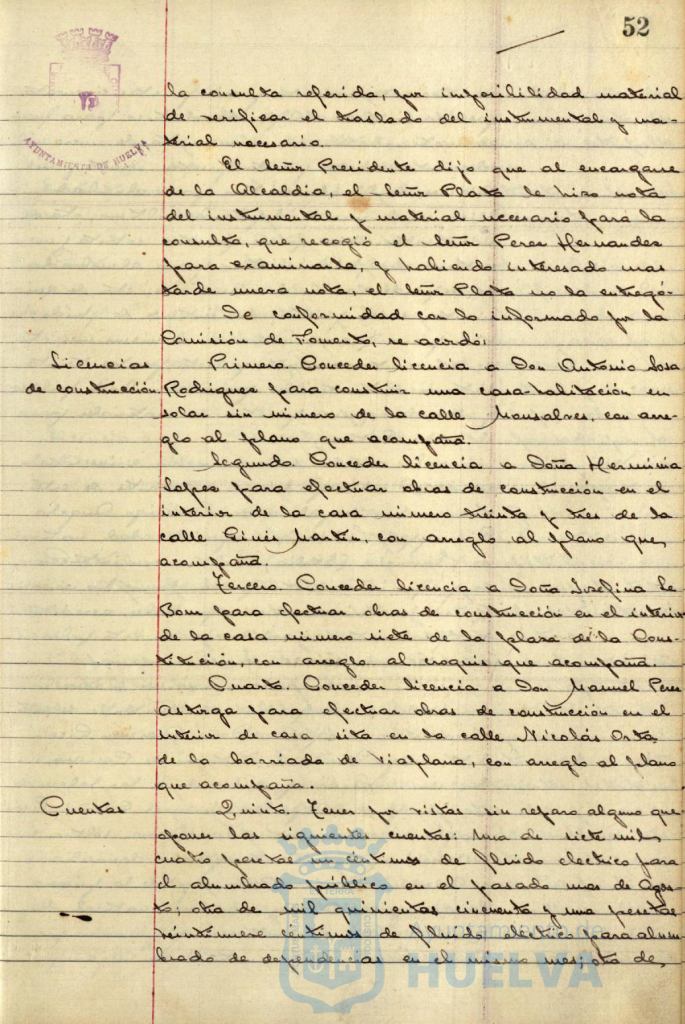 52
AYUNTAMIENTO DE HUELVA
la consulta referida, por imposibilidad material
de verificar el traslado del instrumental y ma-
terial necesario.
El Señor Presidente dijo que al encargarse
de la Alcaldía, el Señor Plata le hizo nota
del instrumental y material necesario para la
consulta, que recogió el Señor Perez Hernandez
para examinarla, y habiendo interesado mas
tarde nueva nota, el Señor Plata no la entregó.
De conformidad con lo informado por la
Comisión de Fomento, se acordó:
Licencias
de construcción.
Primero. Conceder licencia a Don Antonio Sosa
Rodriguez para construir una casa-habitación en
solar sin número de la calle Monsalves, con arre-
glo al plano que acompaña.
Segundo. Conceder licencia a Doña Herminia
Lopez para efectuar obras de construcción en el
interior de la casa número treinta y tres de la
calle Ginés Martín, con arreglo al plano que
acompaña.
Tercero. Conceder licencia a Doña Josefina Le
Bom para efectuar obras de construcción en el interior
de la casa número siete de la plaza de la Cons-
titución, con arreglo al croquis que acompaña.
Cuarto. Conceder licencia a Don Manuel Perez
Astorga para efectuar obras de construcción en el
interior de casa sita en la calle Nicolás Orta,
de la barriada de Viaplana, con arreglo al plano
que acompaña.
Cuentas
Quinto. Tener por vistas sin reparo alguno que
oponer las siguientes cuentas: una de siete mil
cuatro pesetas un céntimos de fluido electrico para
el alumbrado público en el pasado mes de Agos-
to; otra de mil quinientas cincuenta y una pesetas
veintinueve céntimos de fluido eléctrico para alum-
brado de dependencias en el mismo mes; otra de
Ayuntamiento de
HUELVA